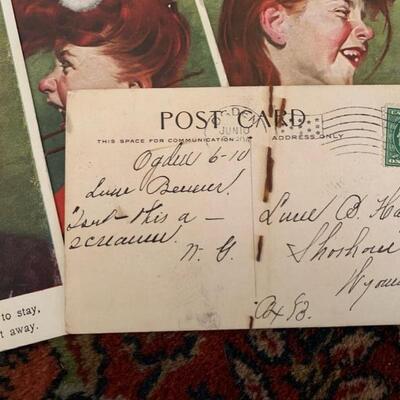 POST CARD
THIS SPACE FOR COMMUNICATION
ADDRESS ONLY
JUN 10
Ogden 6-10
isn't this a —
screamer.
N. G.
B. Ha
Shoshone
Wyom
Bx 83.
to stay,
t away.